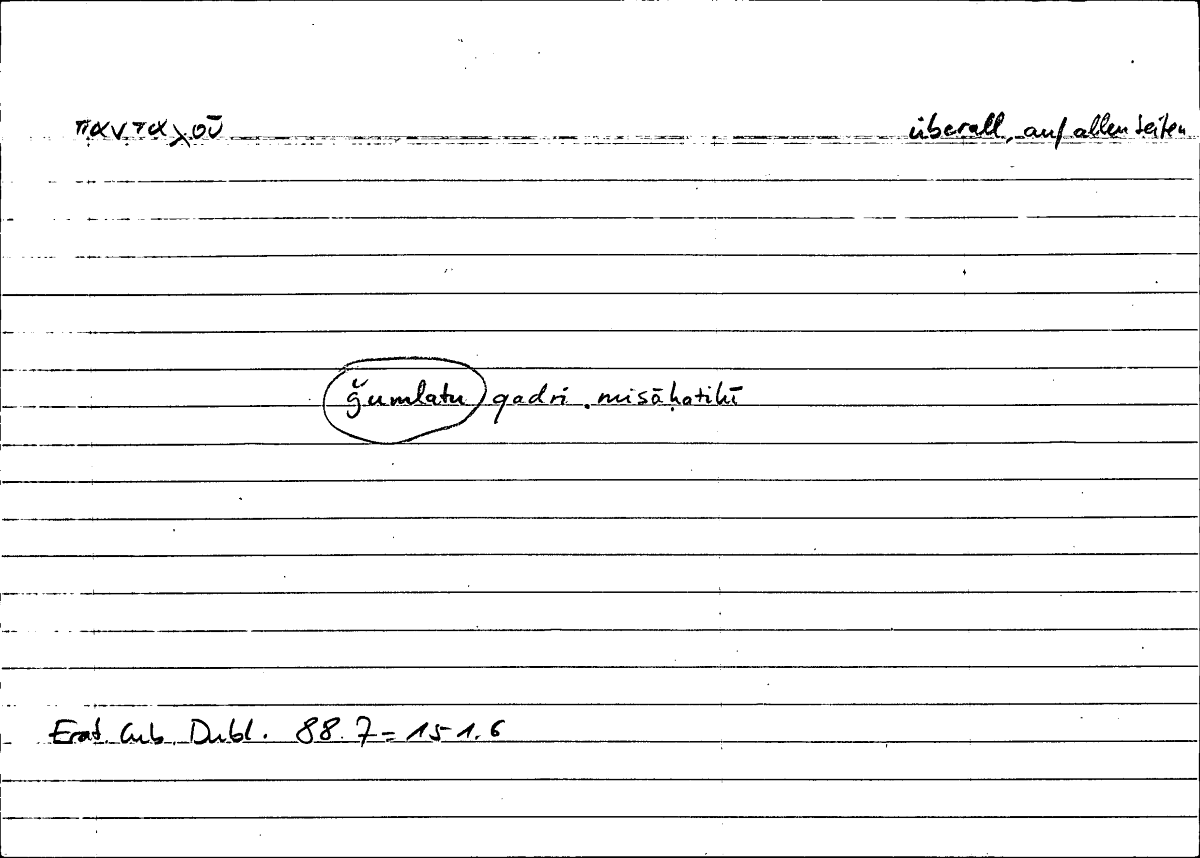 πανταχοῦ überall, auf allen Seiten
ǧumlatu qadri misāḥatihī
Erat. Cub. Dubl. 88.7 = 151.6